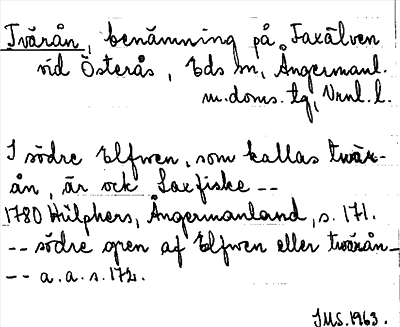 Tvärån, benämning på Faxälven
vid Österås, Eds sn, Ångermanl.
m.doms. tg, Vrnl. l.
I södre Elfwen, som kallas twär-
ån, är ock Laxfiske --
1780 Hülphers, Ångermanland, s. 171.
-- södre gren af Elfwen eller twärån
-- a. a. s. 172.
IMS. 1963.